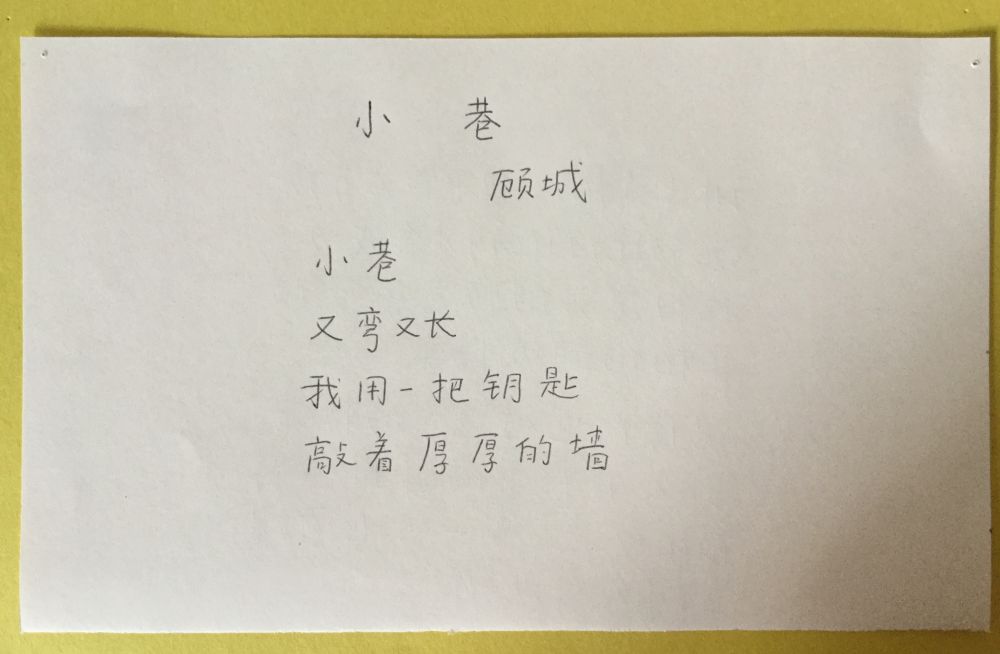 小巷
顾城
小巷
又弯又长
我用一把钥匙
敲着厚厚的墙